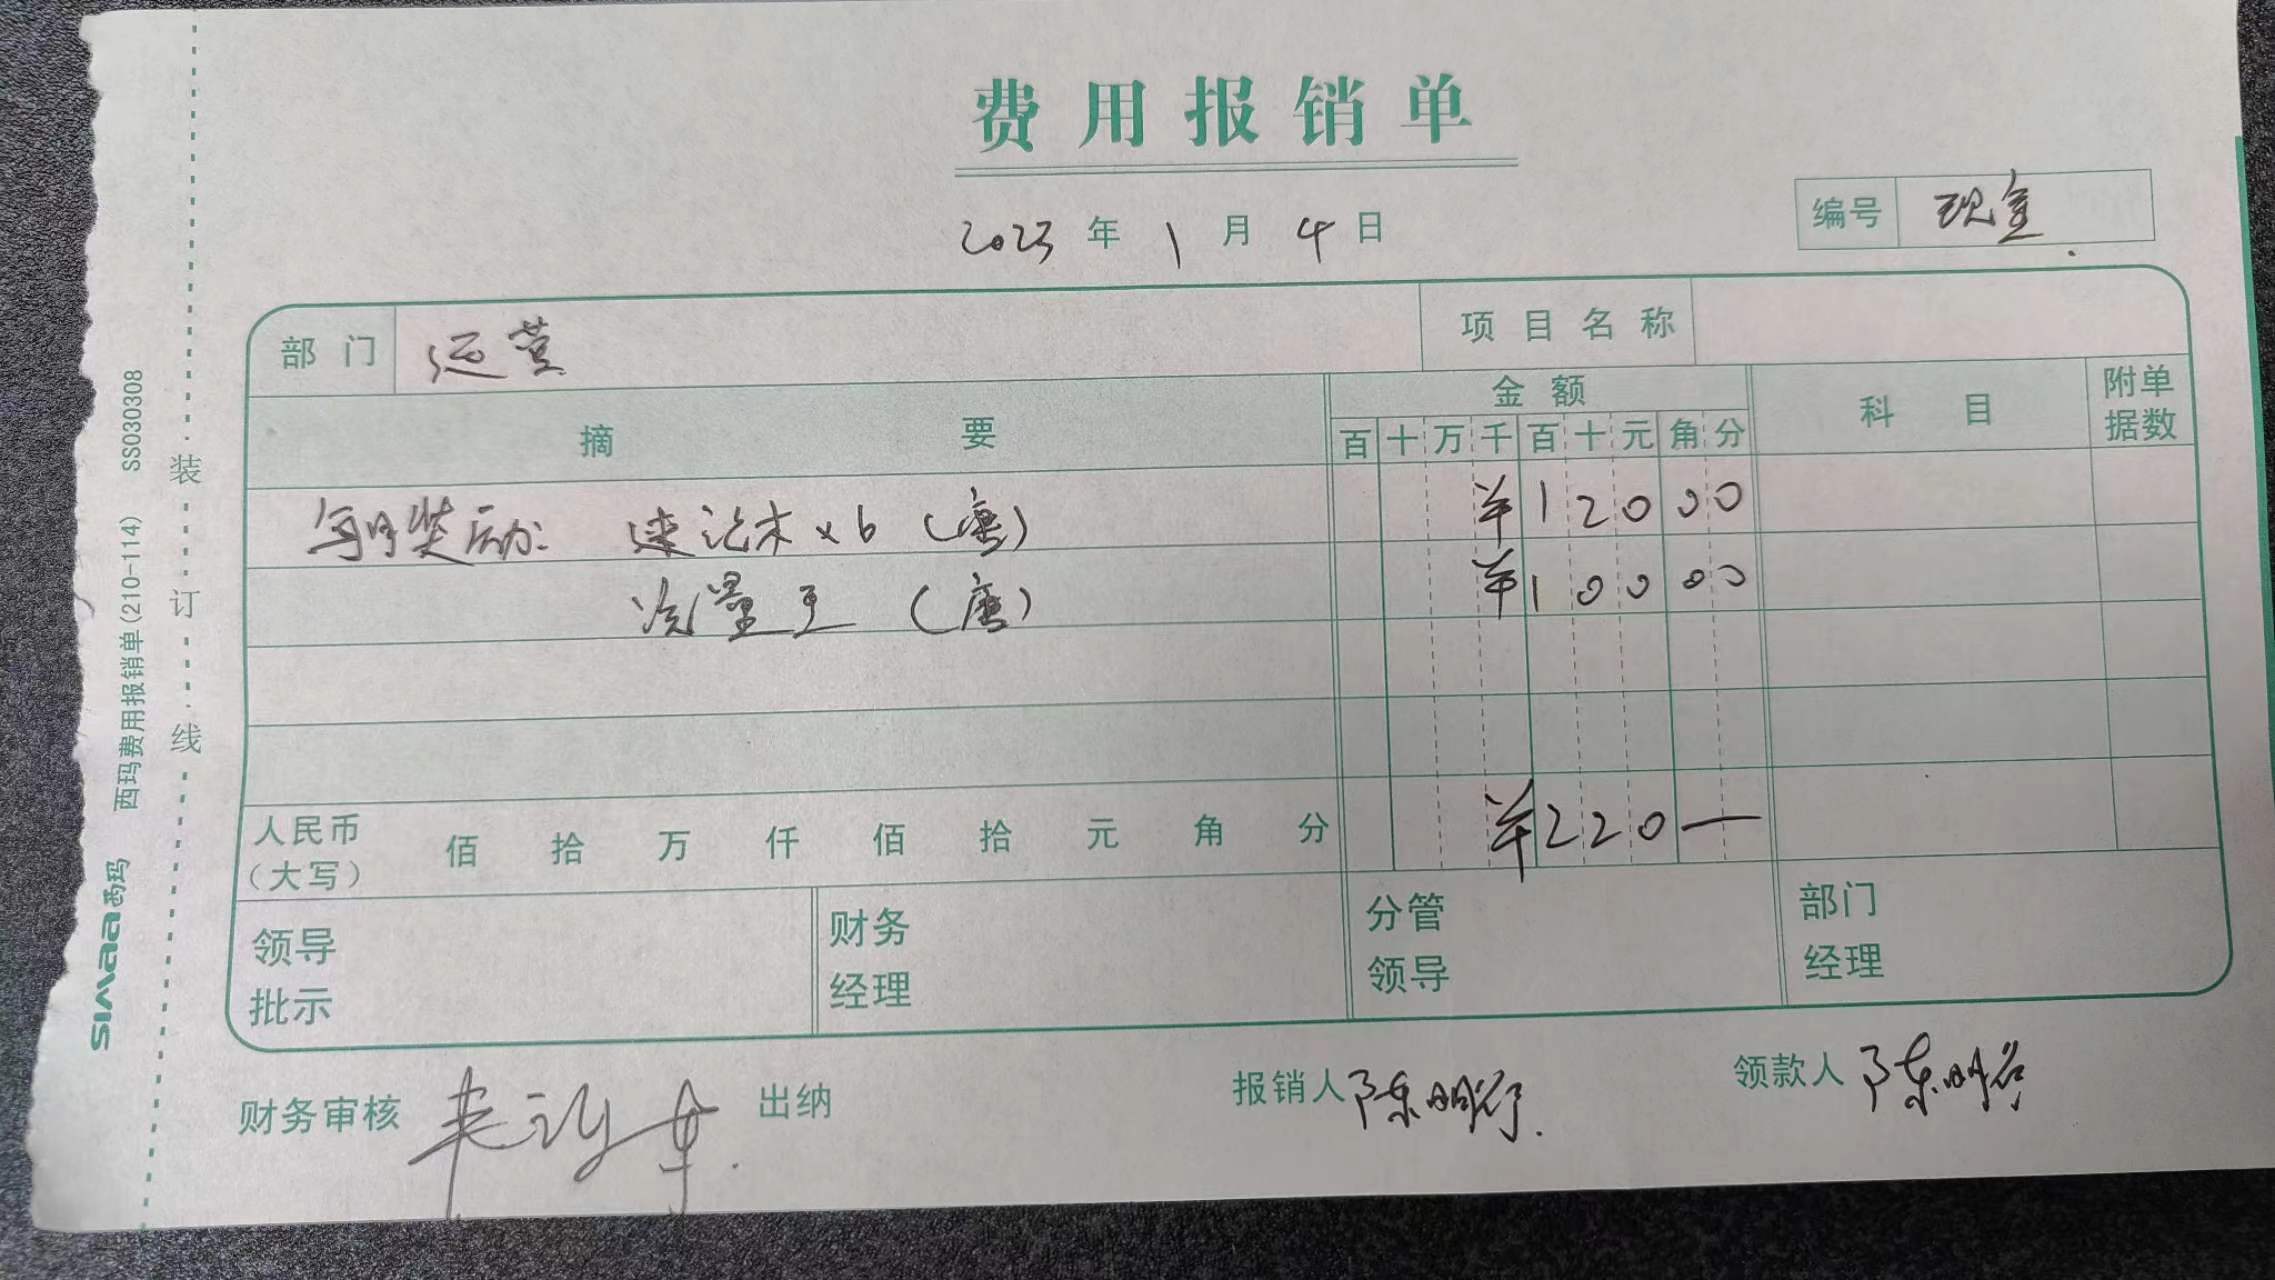 费用报销单
2023年1月4日
编号 现金
部门 运营 项目名称
摘要 金额 科目 附单据数
百十万千百十元角分
每月奖励: 速论木×6 (唐) ¥12000
流量王 (唐) ¥10000
人民币(大写) 佰 拾 万 仟 佰 拾 元 角 分 ¥220—
领导批示 财务经理 分管领导 部门经理
财务审核 出纳 报销人 陈明 领款人 陈明
装订线
SIMAA西玛 西玛费用报销单(210-114) SS030308